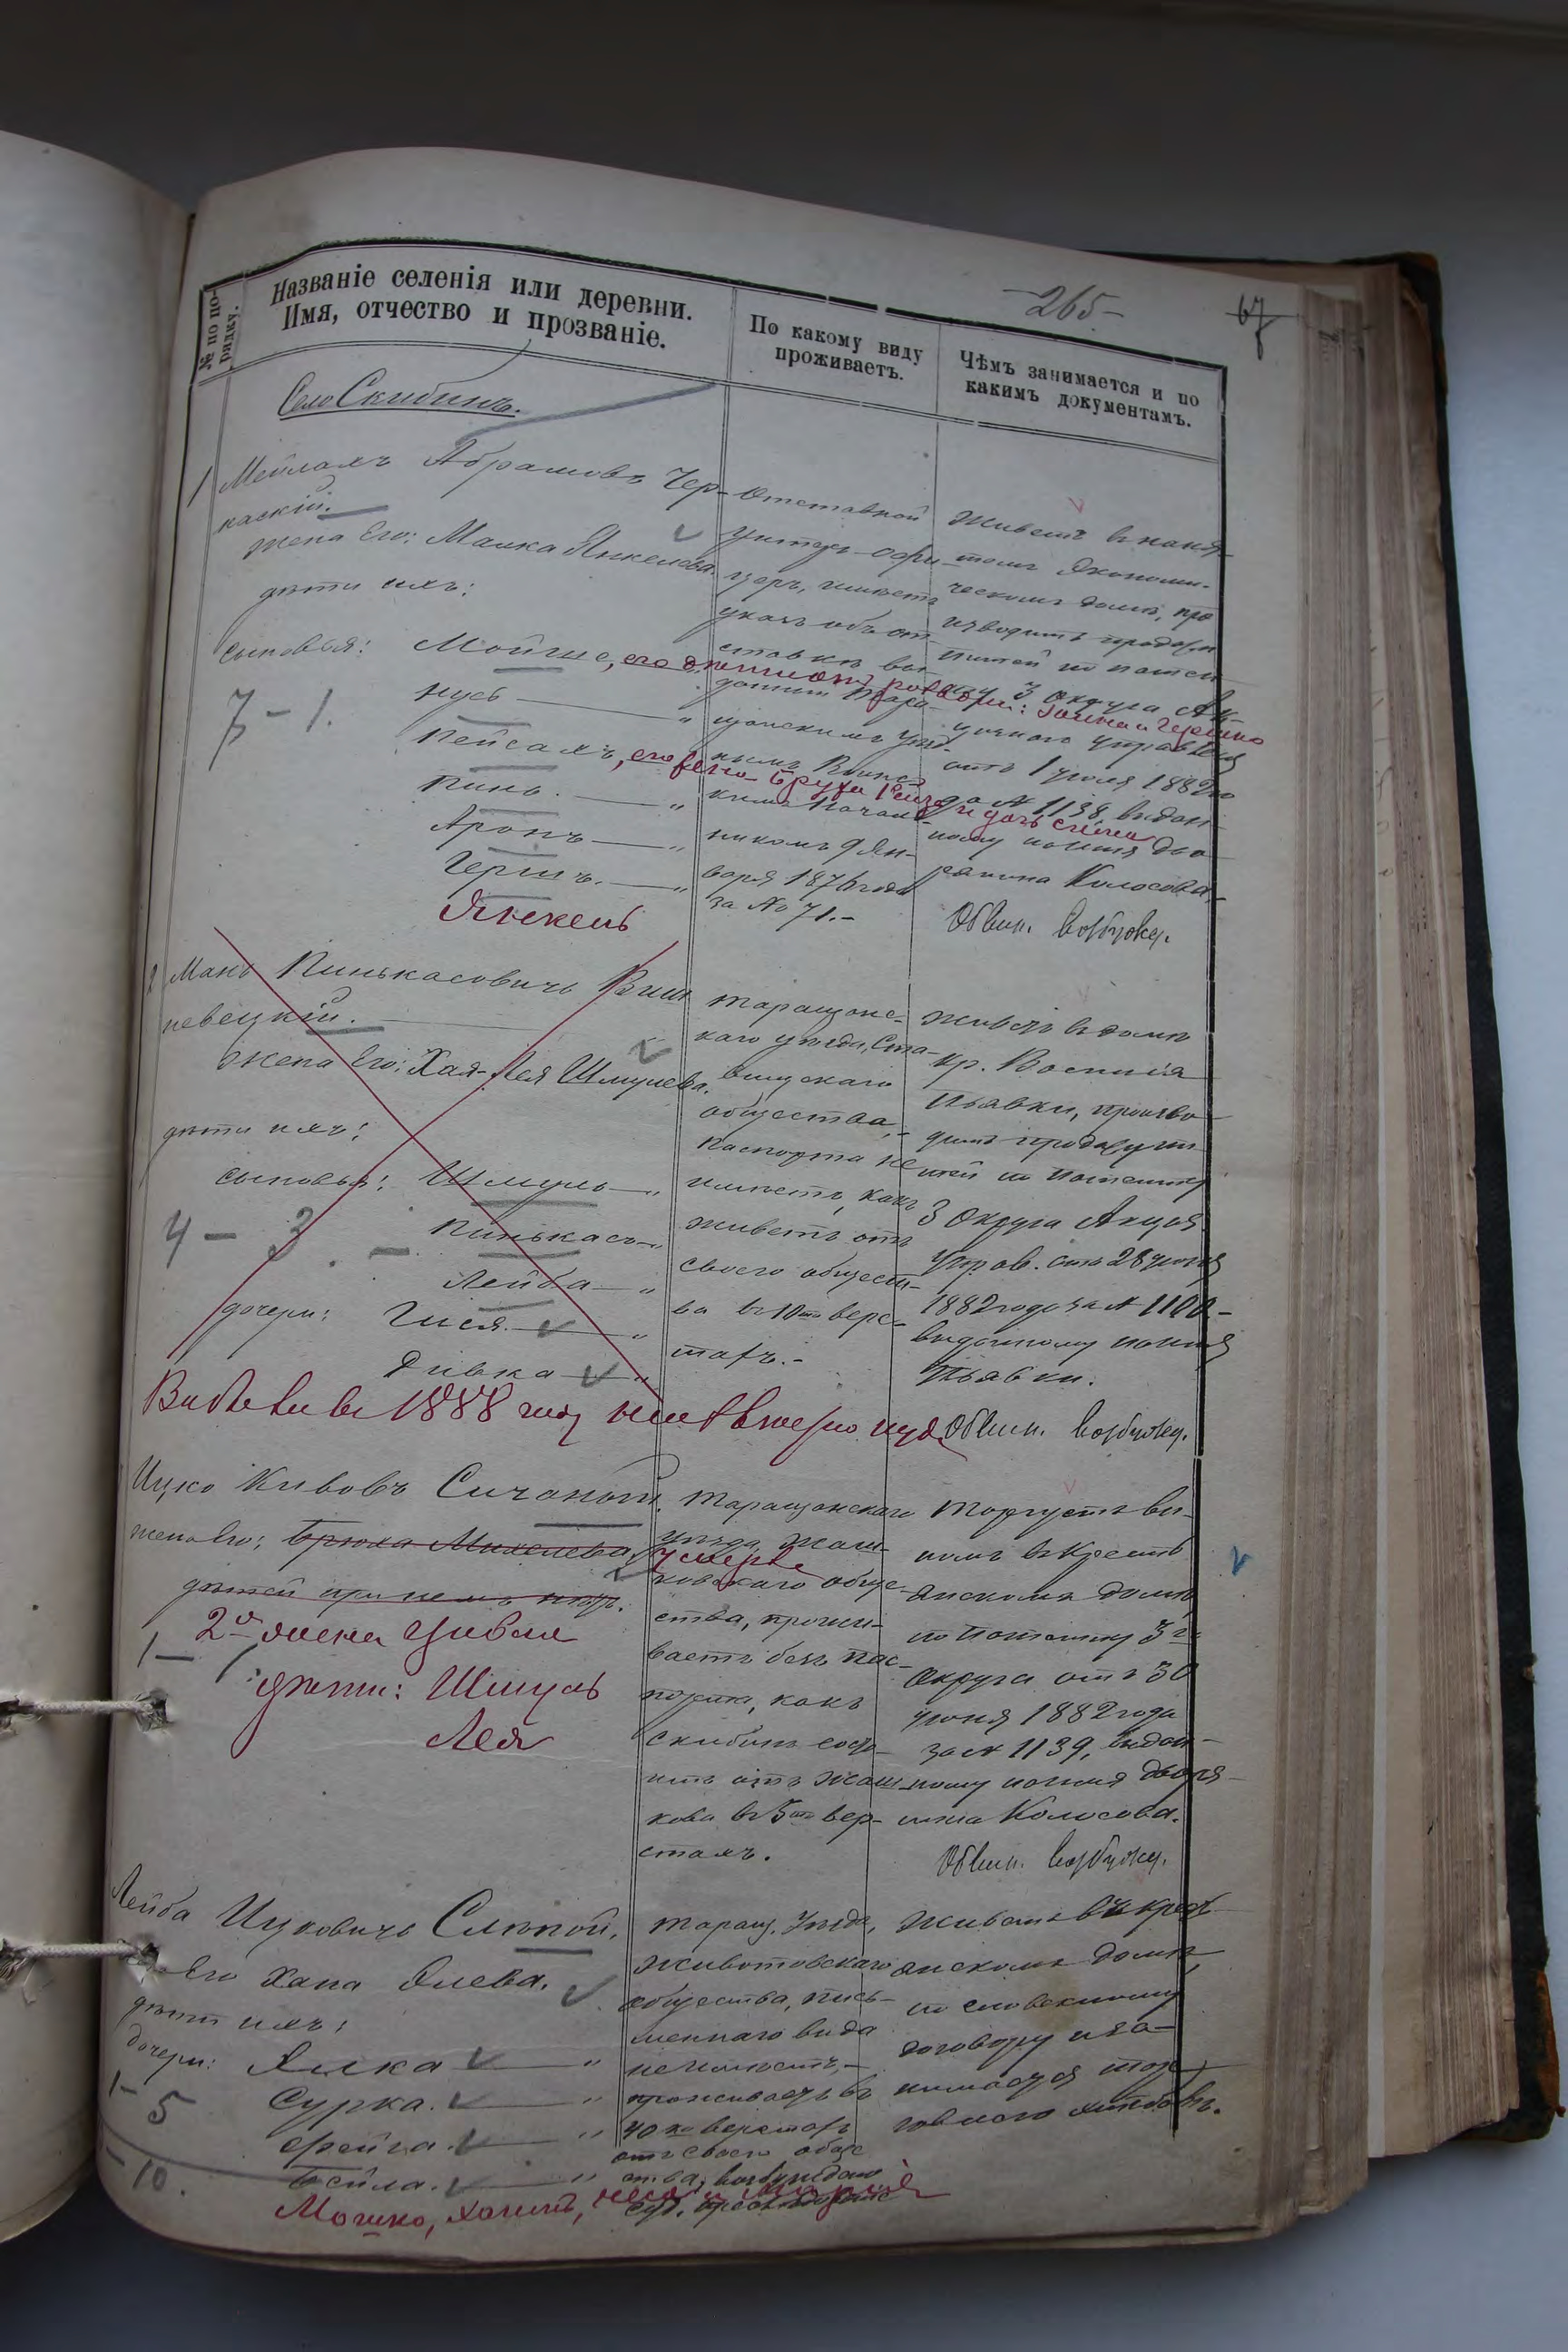 -265-
67
№ по по-
рядку.
Названіе селенія или деревни.
Имя, отчество и прозваніе.
По какому виду
проживаетъ.
Чѣмъ занимается и по
какимъ документамъ.
Село Скибинъ.
1 Мейлахъ Абрамовъ Чер-
каскій.
жена Его: Малка Янкелева.
дѣти ихъ:
сыновья: Мойше,
Нусь "
7 - 1.
Пейсахъ,
Пинь. "
Аронъ "
Гершъ. "
Янкель
Отставной
унтеръ-офи-
церъ, имѣетъ
указъ объ от-
ставкѣ вы-
данный Тара-
щанскимъ уѣзд-
нымъ Воинс-
кимъ Началь-
никомъ 9 Ян-
варя 1876 года
за № 71.-
Живетъ въ наня-
томъ Экономи-
ческомъ домѣ, про
изводитъ продажу
питей по патен-
ту 3 Округа Ак-
цизнаго Управленія
отъ 1 іюля 1882 го
да № 1138, выдан-
ному на имя Дво-
рянина Колосова.-
Обвин. возбужд.
2 Мань Пинькасовичъ Виш
невецкій.
жена Его: Хая-Лея Шмулева.
дѣти ихъ:
сыновья: Шмуль "
4 - 3
Пинькасъ "
Лейба "
дочери: Гися. "
Дивка "
Таращанс-
каго уѣзда, Ста-
вищскаго
общества,-
паспорта не
имѣетъ, какъ
живетъ отъ
своего общест-
ва въ 10ти верс-
тахъ.-
живетъ въ домѣ
кр.
Пьявки, произво-
дитъ продажу пи-
тей по патенту
3 Округа Акциз.
Управ. отъ 28 іюня
1882 года за № 1100-
выданному на имя
Пьявки.
Обвин. возбужд.
1888
Ицко Кивовъ Сичаный.
жена Его: Брюха Михелева.
умерла
дѣтей при немъ нѣтъ.
2я жена Цивля
1 - 1
дѣти: Шмуль
Лея
Таращанскаго
уѣзда, Жаш-
ковскаго обще-
ства, прожи-
ваетъ безъ пас-
порта, какъ
Скибинъ состо-
итъ отъ Жаш-
кова въ 5ти вер-
стахъ.
Торгуетъ ви-
номъ въ Кресть
янскомъ домѣ,
по патенту 3го
Округа отъ 30
іюня 1882 года
за № 1139, выдан-
ному на имя дворя-
нина Колосова.
Обвин. возбужд.
Лейба Ицковичъ Слѣпой.
жена Его Хана
дѣти ихъ:
дочери: Элка "
1- 5
Сурка. "
Фейга. "
Бейла. "
- 10.
Мошко,
Таращ. Уѣзда,
Животовскаго
общества, пись-
меннаго вида
не имѣетъ,-
проживаетъ въ
40хъ верстахъ
отъ своего обще
ства, возбуждено
Живетъ въ крест-
янскомъ домѣ
по словесному
договору и за-
нимается тор-
говлею хлѣбомъ.